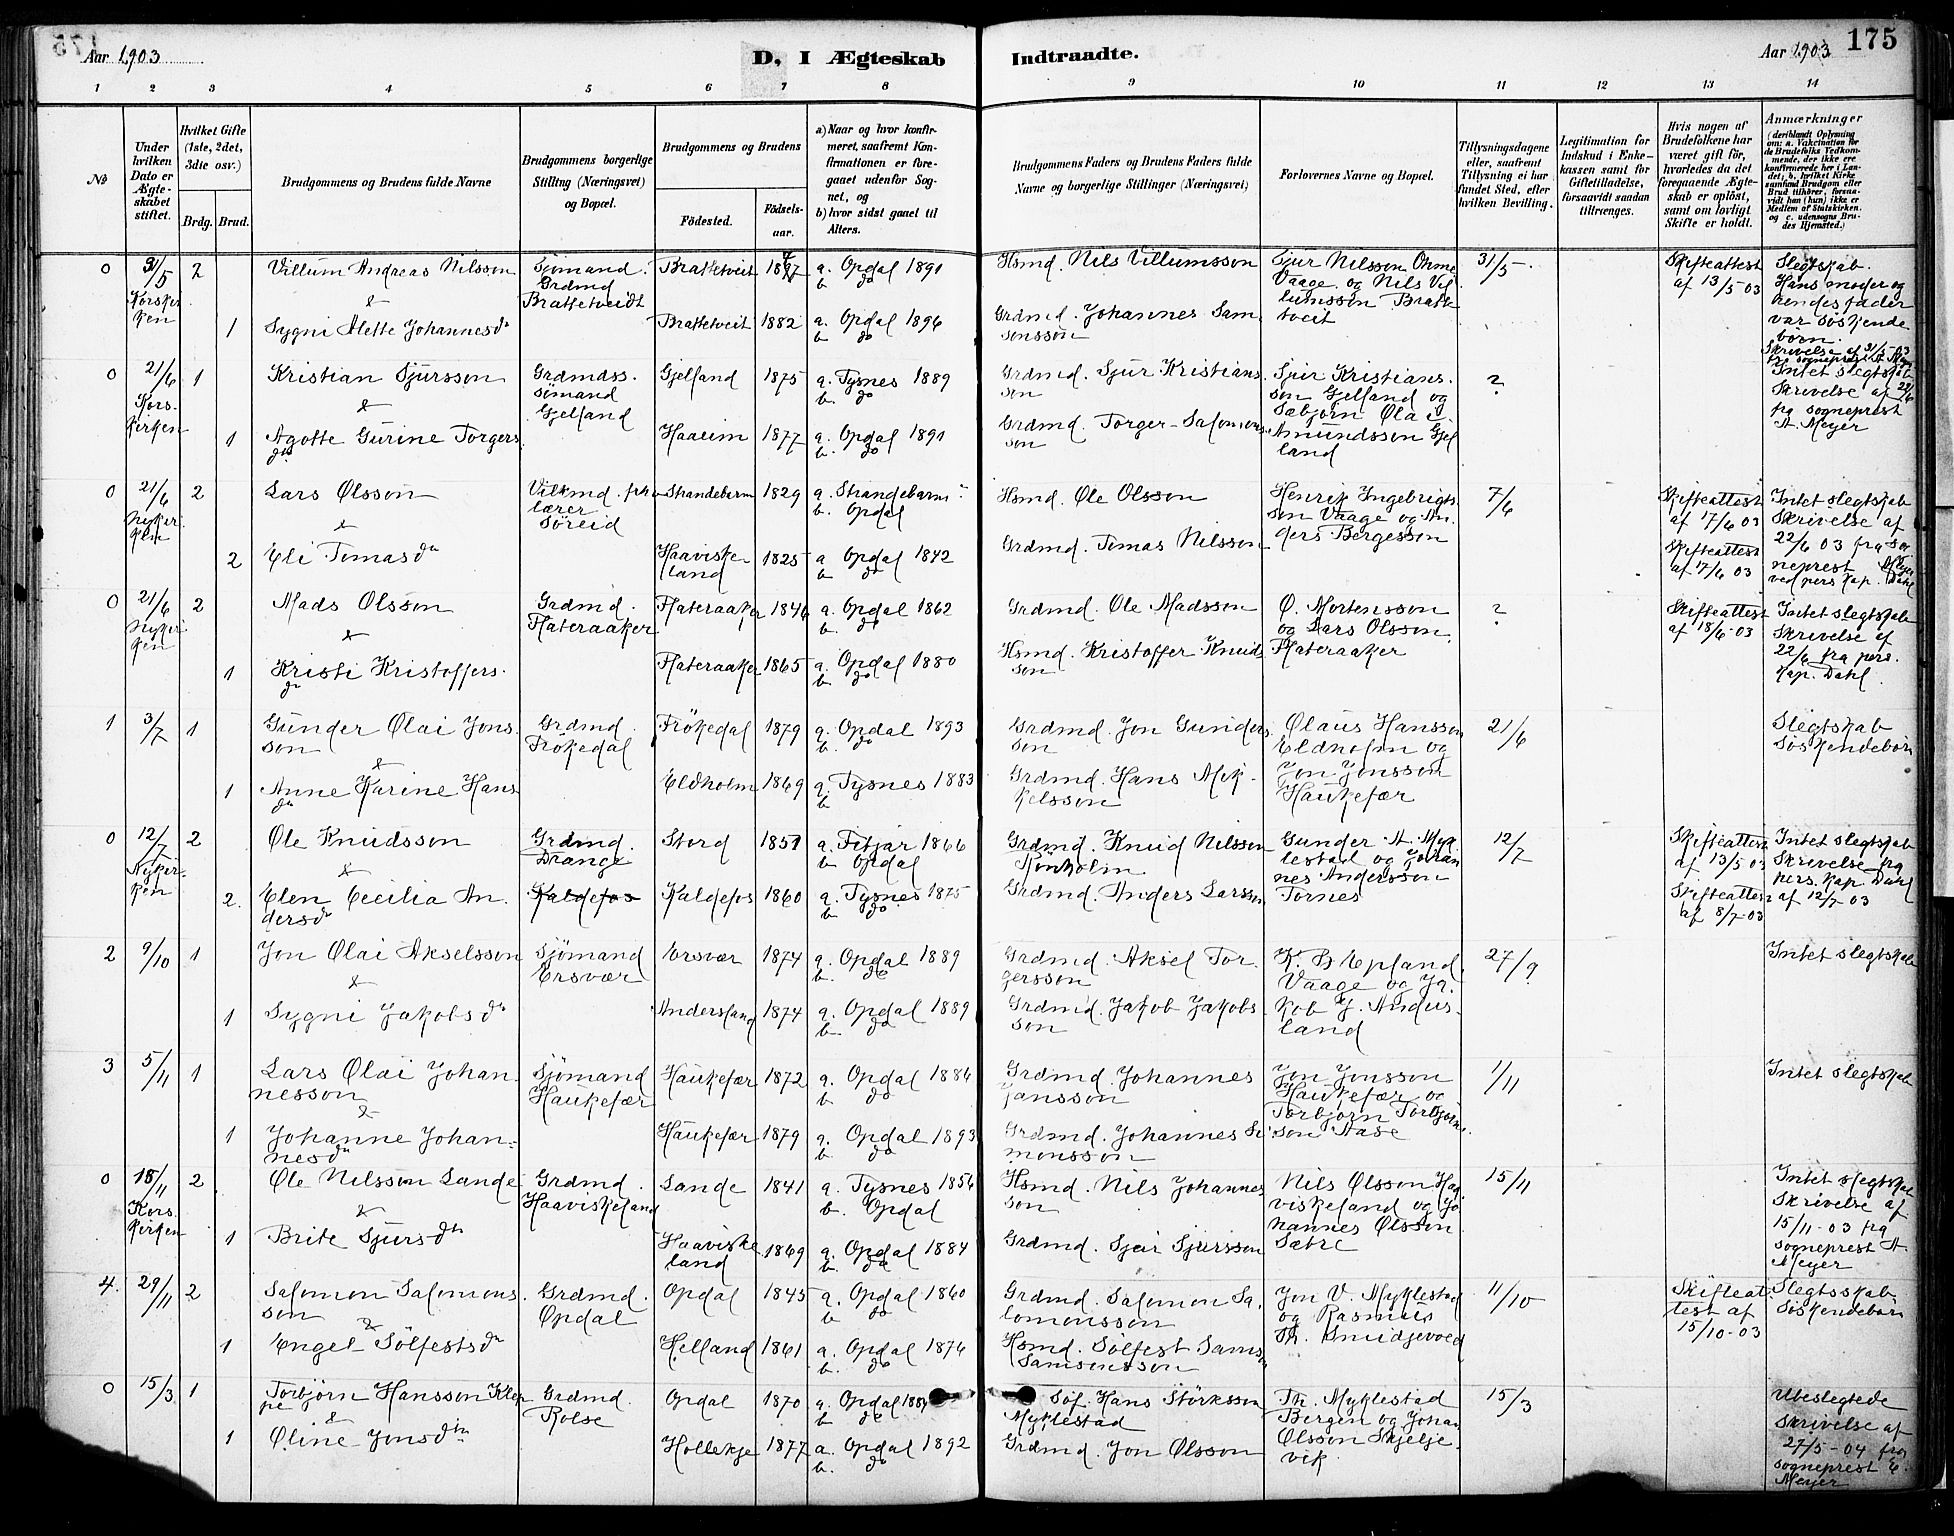 Aar 1903
D, I Ægteskab
Indtraadte.
Aar 1903
175
1 2 3 4 5 6 7 8 9 10 11 12 13 14
No
Under hvilken Dato er Ægteskabet stiftet.
Hvilket Gifte (1ste, 2det, 3die osv.)
Brdg. Brud.
Brudgommens og Brudens fulde Navne
Brudgommens borgerlige Stilling (Næringsvei) og Bopæl.
Brudgommens og Brudens
Fødested.
Fødsels-aar.
a) Naar og hvor konfirmeret, saafremt Konfirmationen er foregaaet udenfor Sognet, og
b) hvor sidst gaaet til Alters.
Brudgommens Faders og Brudens Faders fulde Navne og borgerlige Stillinger (Næringsvei)
Forlovernes Navne og Bopæl.
Tillysningsdagene eller, saafremt Tillysning ei har fundet Sted, efter hvilken Bevilling.
Legitimation for Indskud i Enkekassen samt for Giftetilladelse, forsaavidt saadan tiltrænges.
Hvis nogen af Brudefolkene har været gift før, hvorledes da det foregaaende Ægteskab er opløst, samt om lovligt Skifte er holdt.
Anmærkninger
(deriblandt Oplysning om: a. Vakcination for de Brudefolks Vedkommende, der ikke ere konfirmerede her i Landet; b. hvilket Kirkesamfund Brudgom eller Brud tilhører, forsaavidt han (hun) ikke er Medlem af Statskirken. og c. udensogns Brudes Hjemsted.)
0 31/5 Korskirken 2 Villum Andreas Nilsson Sjömand. Grdmd Brattetveidt Brattetveit a. Opdal 1891 b. do Hsmd. Nils Villumsson Sjur Nilsson Vaage og Nils Villumsson Brattetveit 31/5 Skifteattest af 13/5 03 Slegtskab. Hans moder og hendes fader var söskendebörn. Skrivelse af 31/5-03 fra sogneprest A. Meyer
&
1 Sygni Alette Johannesdr Brattetveit 1882 a. Opdal 1896 b. do Grdmd. Johannes Samsonsson
0 21/6 Korskirken 1 Kristian Sjursson Grdmdss. sömand Gjelland Gjelland 1875 a. Tysnes 1889 b. do Grdmd. Sjur Kristiansson Sjur Kristiansson Gjelland og Sæbjörn Olai Amundsson Gjelland ? Intet slegtskab Skrivelse af 22/6 fra sogneprest A. Meyer
&
1 Agotte Gurine Torgersdr Haaeim 1877 a. Opdal 1891 b. do Grdmd. Torger Salomonsson
0 21/6 Nykirken 2 Lars Olsson Vilkmd. fhv. lærer. Söreid Strandebarm 1829 a. Strandebarm b. Opdal Hsmd. Ole Olsson Henrik Ingebrigtsson Vaage og Anders Bergesson 7/6 Skifteattest af 17/6 03 Intet slegtskab Skrivelse af 22/6 03 fra sogneprest Meyer ved pers. Kap. Dahl
&
2 Eli Tomasdr Haaviskeland 1825 a Opdal 1842 b do Grdmd. Tomas Nilsson Skifteattest af 17/6 03
0 21/6 Nykirken 2 Mads Olsson Grdmd. Flateraaker Flateraaker 1846 a. Opdal 1862 b. do Grdmd. Ole Madsson O. Mortensson og Lars Olsson Flateraaker ? Skifteattest af 18/6-03 Intet slegtskab Skrivelse af 22/6 fra pers. Kap. Dahl.
&
1 Kristi Kristoffersdr Flateraaker 1865 a. Opdal 1880 b. do Hsmd. Kristoffer Knudsson
1 3/7 1 Gunder Olai Jonsson Grdmd. Frökedal Frökedal 1879 a. Opdal 1893 b. do Grdmd. Jon Gundersson Olaus Hansson Eldholm og Jon Jonsson Haukefær 21/6 Slegtskab Söskendebörn
&
1 Anne Karine Hansdr Eldholm 1869 a. Tysnes 1883 b Grdmd. Hans Mikkelsson
0 12/7 Nykirken 2 Ole Knudsson Grdmd. Drange Stord 1851 a. Fitjar 1866 b Opdal Grdmd. Knud Nilsson Gunder A. Myklestad og Johannes Andersson Tornes 12/7 Skifteattest af 13/5 03 Intet slegtskab Skrivelse fra pers. Kap. Dahl af 12/7-03
&
2. Elen Cecilia Andersdr Kaldefos Kaldefos 1860 a. Tysnes 1875 b. do Grdmd. Anders Larsson Skifteattest af 8/7-03
2 9/10 1 Jon Olai Akselsson Sjömand Ersvær Ersvær 1874 a. Opdal 1889 b. do Grdmd. Aksel Torgersson K. B. Epland Vaage og Jakob J. Andersland 27/9 Intet slegtskab
&
1 Sygni Jakobsdr Andersland 1874 a. Opdal 1889 b. do Grdmd. Jakob Jakobsson
3 5/11 1 Lars Olai Johannesson Sjömand Haukefær Haukefær 1872 a. Opdal 1886 b. do Grdmd. Johannes Jansson Jon Jonsson Haukefær og Torbjörn Torbjörnsson Aase 1/11 Intet slegtskab
&
1 Johanne Johannesdr Haukefær 1879 a. Opdal 1893 b. do Grdmd. Johannes Simonsson
0 15/11 Korskirken 2 Ole Nilsson Lande Grdmd. Haaviskeland Lande 1841 a. Tysnes 1856 b. Opdal Hsmd. Nils Johannesson Nils Olsson Haaviskeland og Johannes Olsson Sætre 15/11 Intet slegtskab Skrivelse af 15/11-03 fra sogneprest A Meyer
&
1 Brite Sjursdr Haaviskeland 1869 a. Opdal 1884 b. do Grdmd. Sjur Sjursson
4. 29/11 2 Salomon Salomonsson Grdmd. Opdal Opdal 1845 a. Opdal 1860 b. do Grdmd. Salomon Salomonsson Jon V. Myklestad og Rasmus Th. Smidjevold 11/10 Skifteattest af 15/10-03 Slegtsskab Söskendebörn
&
1 Engel Sölfestsdr Helland 1861 a. Opdal 1876 b. do Hsmd. Sölfest Samson Samsonsson
0 15/3 1 Torbjörn Hansson Kleppe Grdmd. Rolse Opdal 1870 a. Opdal b do Søf. Hans Störksson Myklestad Th. Myklestad Bergen og Johan Olsson Skjeljevik 15/3 Ubeslegtede Skrivelse af 27/5-04 fra sogneprest Meyer
&
1 Oline Jonsdtr Hollekje 1877 a. Opdal 1892 b. do Grdmd. Jon Olsson